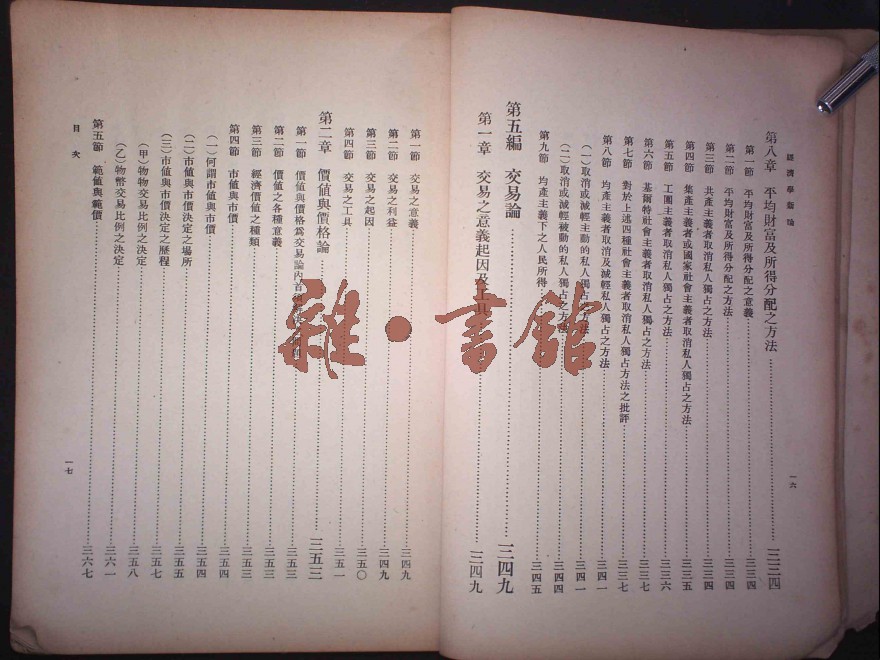 經濟學新論
第八章 平均財富及所得分配之方法 三三四
第一節 平均財富及所得分配之意義 三三四
第二節 平均財富及所得分配之方法 三三四
第三節 共產主義者取消私人獨占之方法 三三四
第四節 集產主義者或國家社會主義者取消私人獨占之方法 三三五
第五節 工團主義者取消私人獨占之方法 三三六
第六節 基爾特社會主義者取消私人獨占之方法 三三七
第七節 對於上述四種社會主義者取消私人獨占方法之批評 三三七
第八節 均產主義者取消及減輕私人獨占之方法 三四一
(一)取消或減輕主動的私人獨占之方法 三四一
(二)取消或減輕被動的私人獨占之方法 三四四
第九節 均產主義下之人民所得 三四五
第五編 交易論 三四九
第一章 交易之意義起因及工具 三四九
一六
第一節 交易之意義 三四九
第二節 交易之利益 三四九
第三節 交易之起因 三五〇
第四節 交易之工具 三五一
第二章 價值與價格論 三五三
第一節 價值與價格爲交易論內首 三五三
第二節 價值之各種意義 三五三
第三節 經濟價值之種類 三五三
第四節 市值與市價 三五四
(一)何謂市值與市價 三五四
(二)市值與市價決定之場所 三五五
(三)市值與市價決定之歷程 三五七
(甲)物物交易比例之決定 三五八
(乙)物幣交易比例之決定 三六一
第五節 範值與範價 三六七
目次
一七
雜·書館